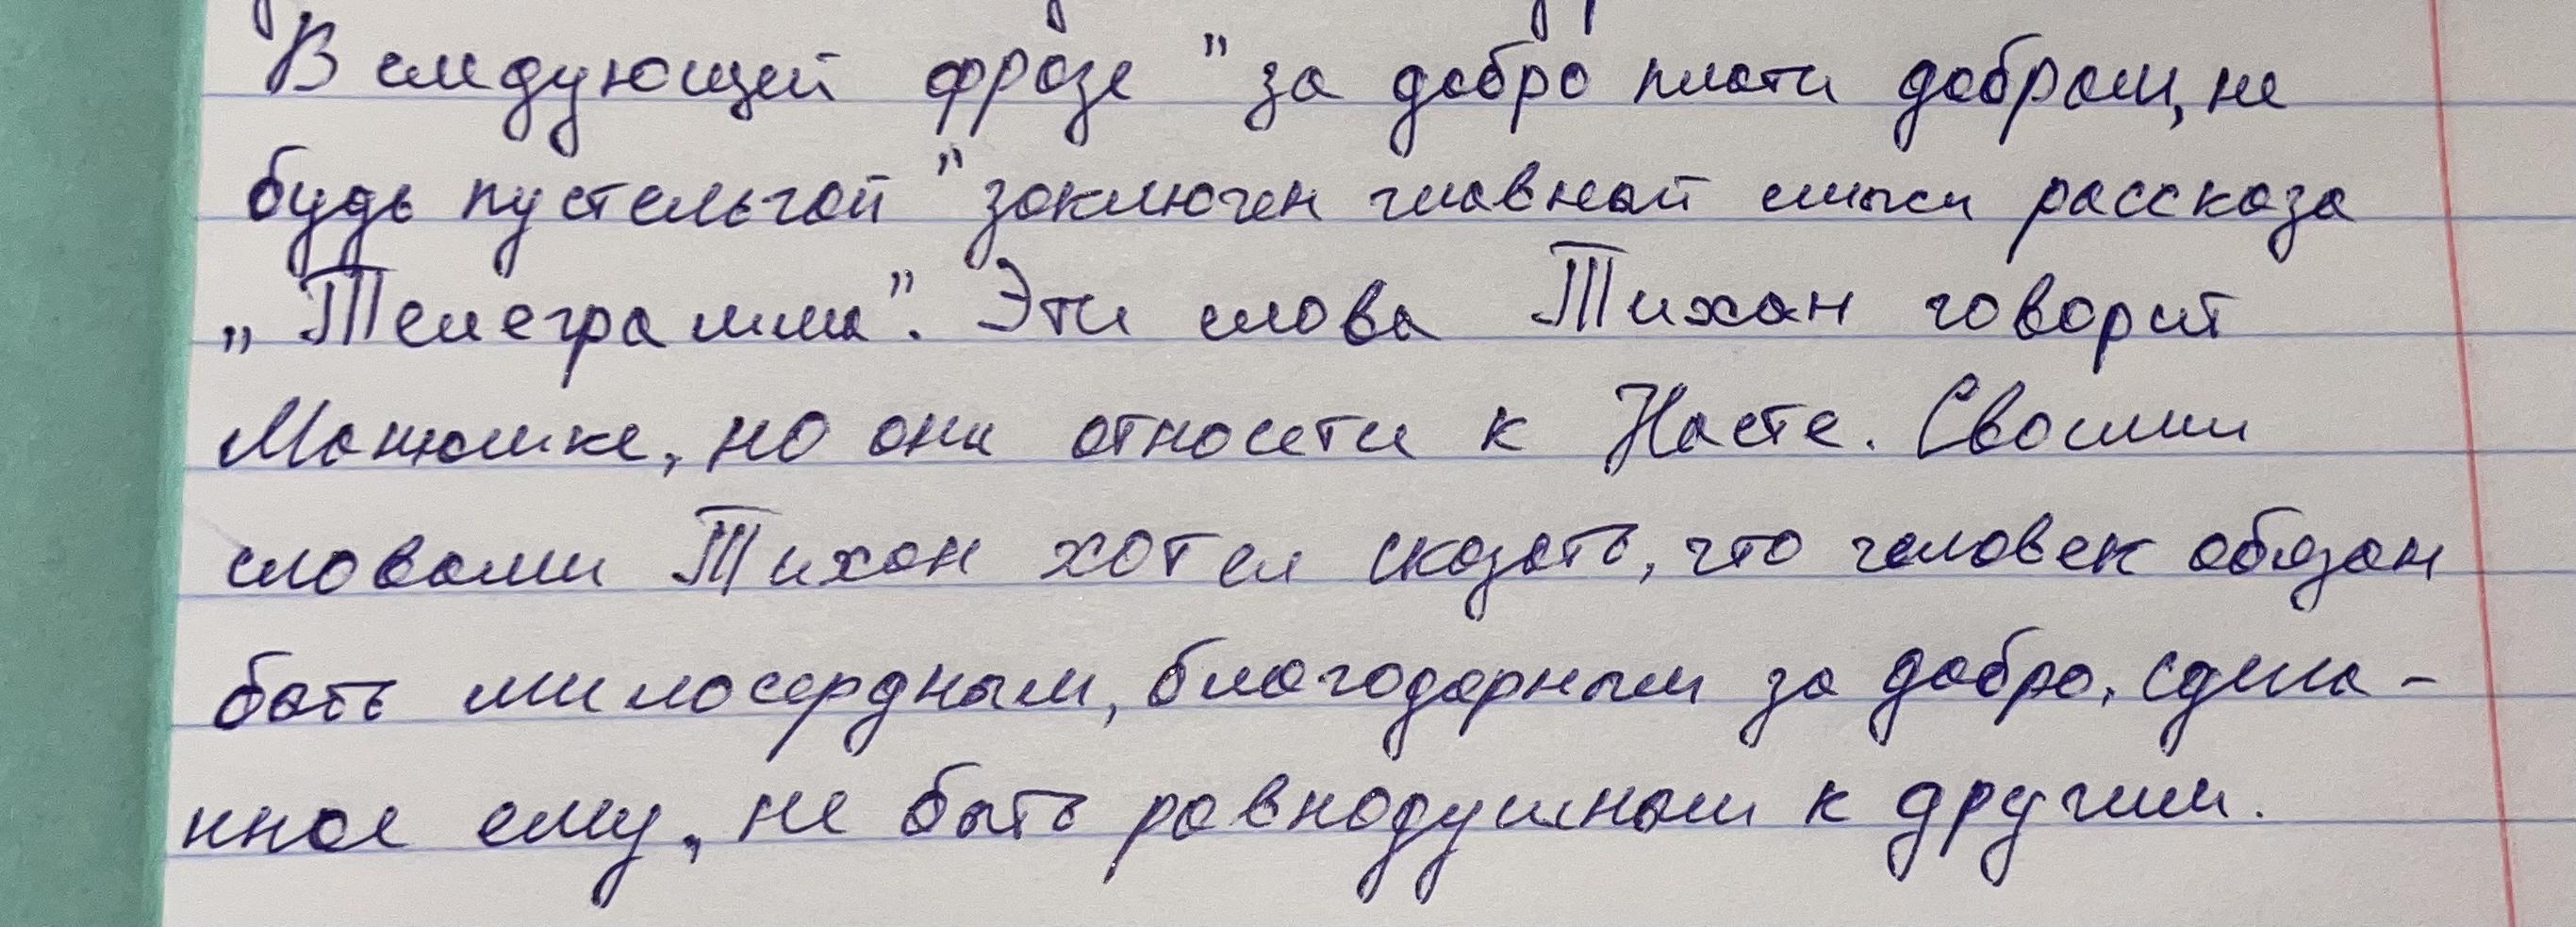 В следующей фразе "за добро плати добром, не
будь пустельгой" заключен главный смысл рассказа
„Телеграмма". Эти слова Тихон говорит
Манюшке, но они относити к Насте. Своими
словами Тихон хотел сказать, что человек обязан
быть милосердным, благодарным за добро, сдела-
нное ему, не быть равнодушным к другим.